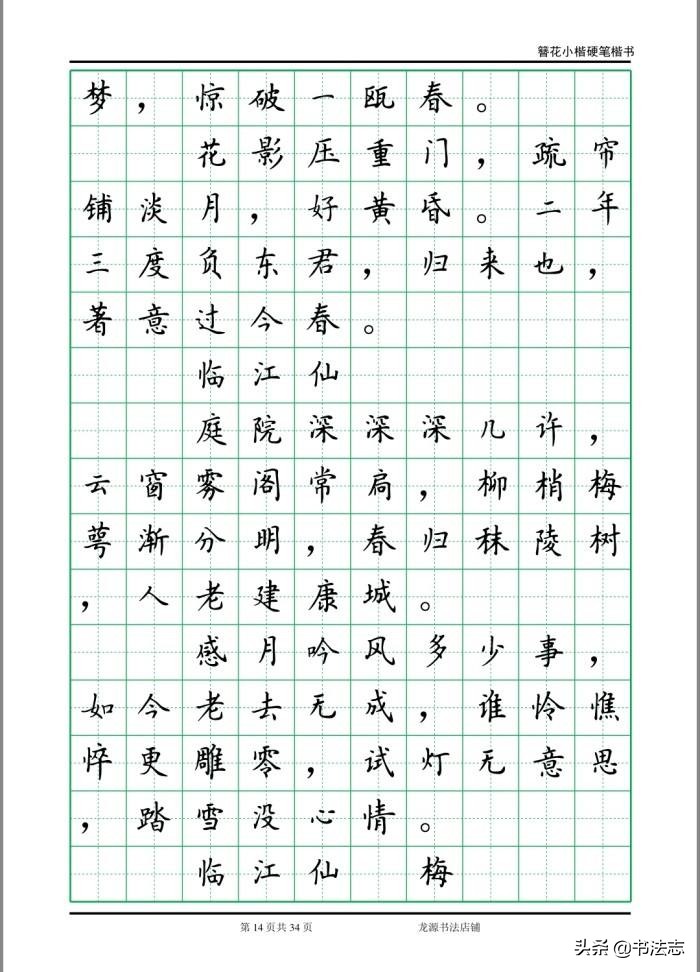 簪花小楷硬笔楷书
梦，惊破一瓯春。
花影压重门，疏帘
铺淡月，好黄昏。二年
三度负东君，归来也，
著意过今春。
临江仙
庭院深深深几许，
云窗雾阁常扃，柳梢梅
萼渐分明，春归秣陵树
，人老建康城。
感月吟风多少事，
如今老去无成，谁怜憔
悴更雕零，试灯无意思
，踏雪没心情。
临江仙 梅
第 14 页共 34 页 龙源书法店铺
头条 @书法志